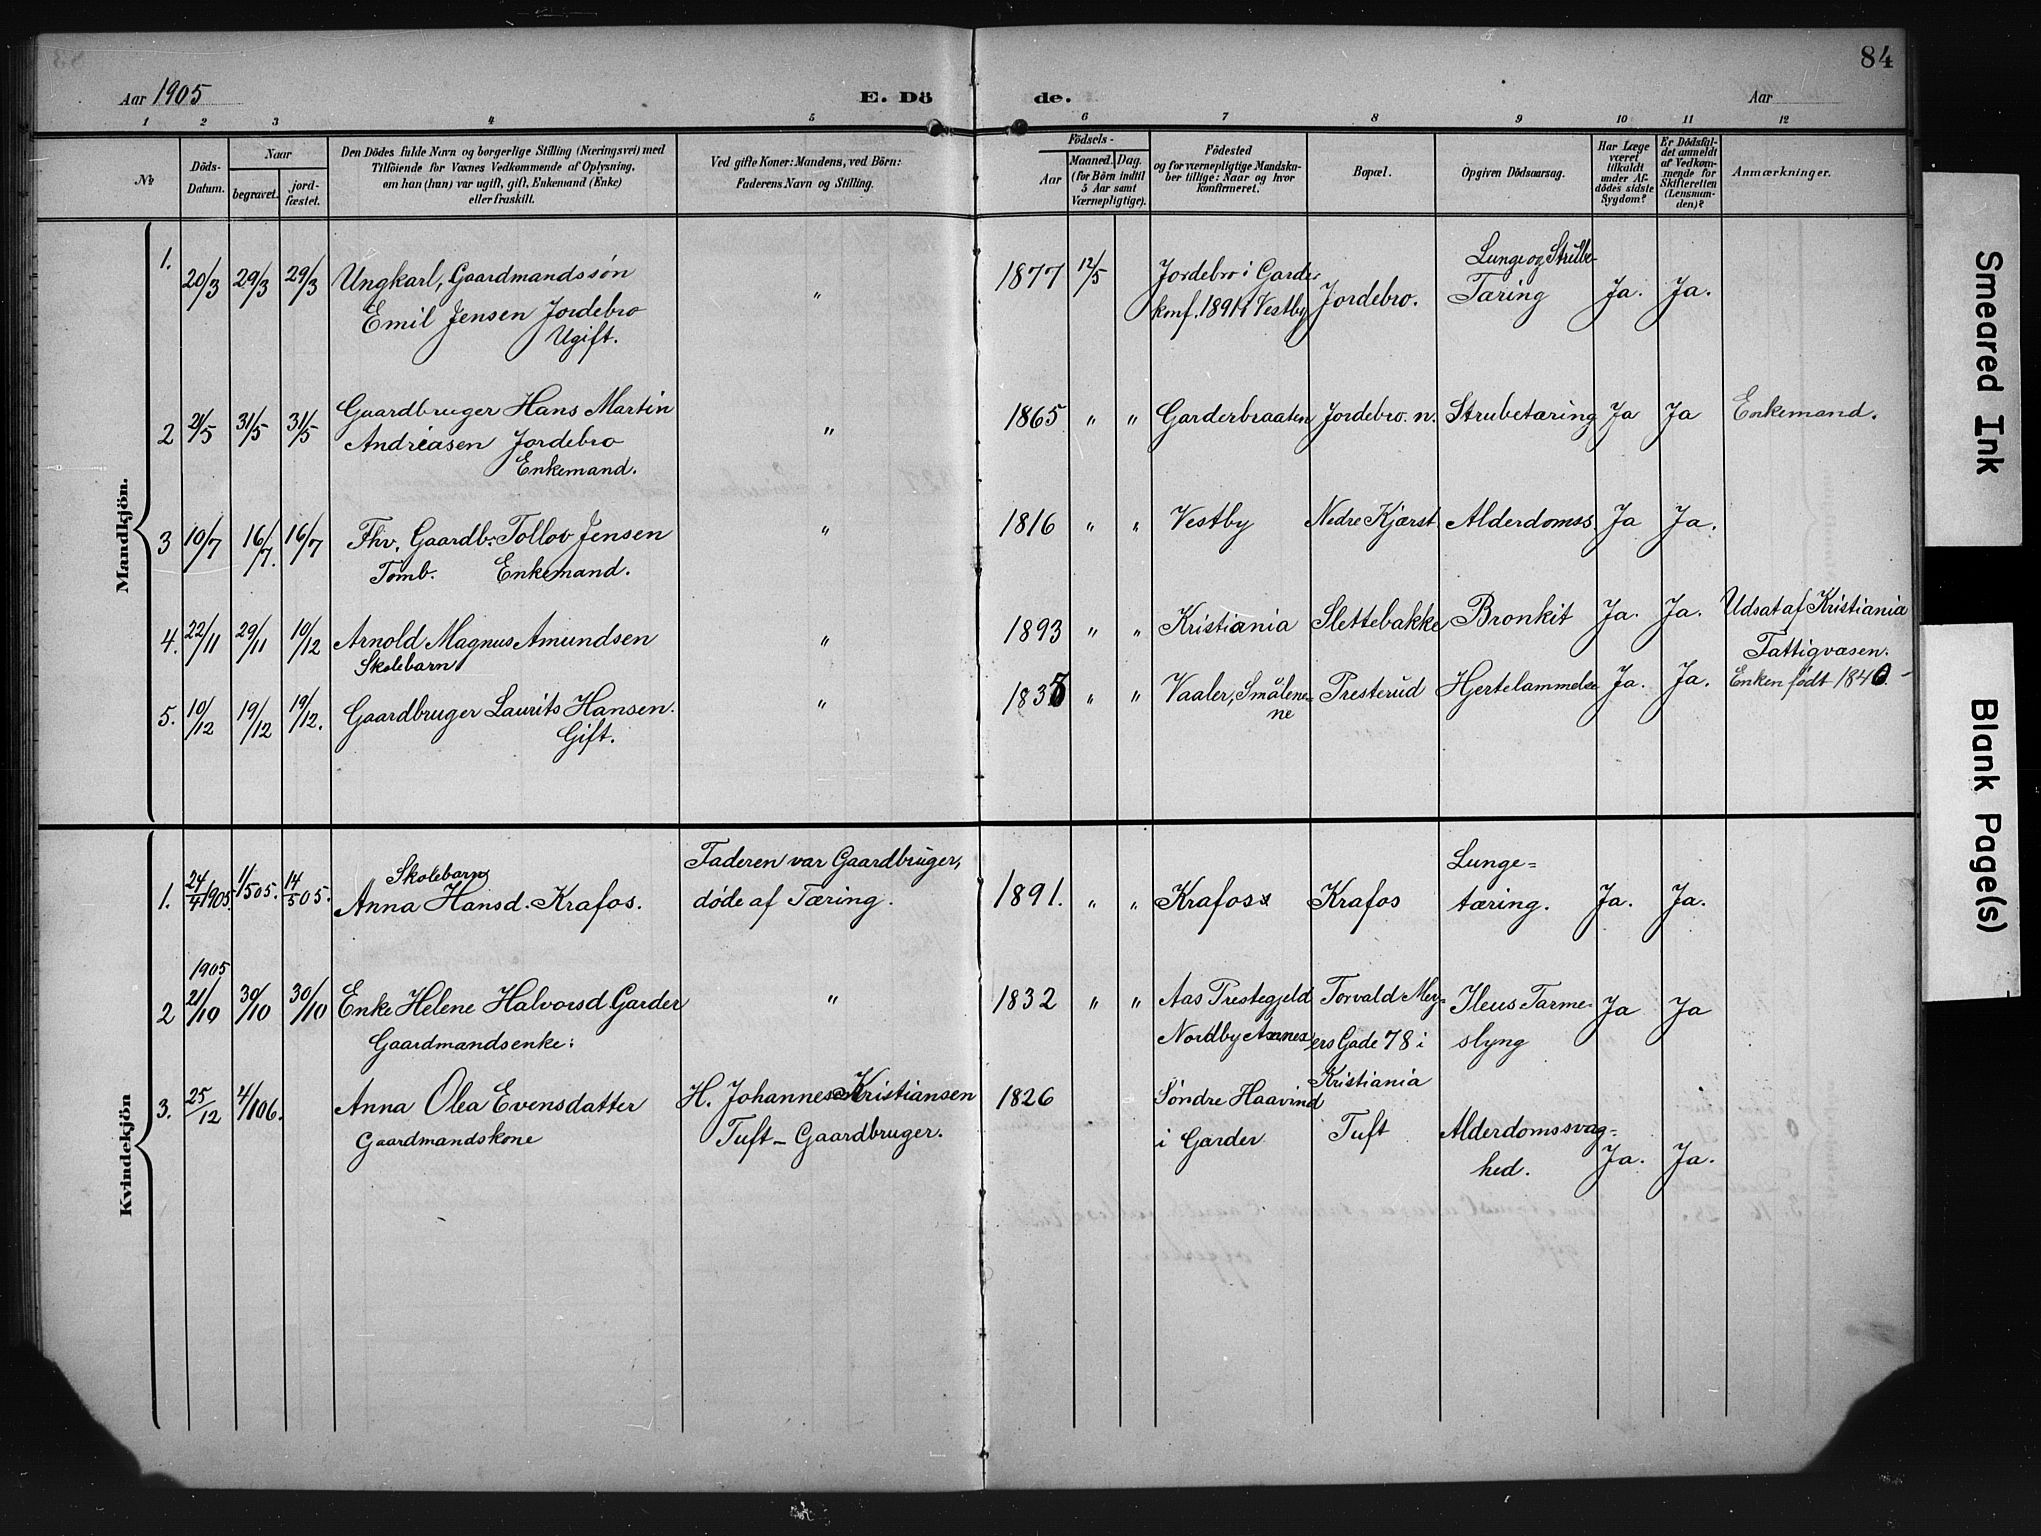 84
Aar 1905
E. Dö
de.
Aar
1 2 3 4 5 6 7 8 9 10 11 12
№
Döds-
Datum.
Naar
begravet.
jord-
fæstet.
Den Dödes fulde Navn og borgerlige Stilling (Næringsvei) med
Tilföiende for Voxnes Vedkommende af Oplysning,
om han (hun) var ugift, gift, Enkemand (Enke)
eller fraskilt.
Ved gifte Koner: Mandens, ved Börn:
Faderens Navn og Stilling.
Födsels-
Aar
Maaned. Dag.
(for Börn indtil
5 Aar samt
Værnepligtige).
Födested
og for værnepligtige Mandska-
ber tillige: Naar og hvor
konfirmeret.
Bopæl.
Opgiven Dödsaarsag.
Har Læge
været
tilkaldt
under Af-
dödes sidste
Sygdom?
Er Dödsfal-
det anmeldt
af Vedkom-
mende for
Skifteretten
(Lensman-
den)?
Anmærkninger.
Mandkjön.
1. 20/3 29/3 29/3 Ungkarl, Gaardmandssøn
Emil Jensen Jordebro
Ugift.
" 1877 12/5 Jordebro i Garder
konf. 1891 i Vestby
Jordebro.
Lunge og Strube-
Tæring
Ja. Ja.
2 21/5 31/5 31/5 Gaardbruger Hans Martin
Andreasen Jordebro
Enkemand.
" 1865 " " Garderbraaten Jordebro. n. Strubetæring Ja Ja Enkemand.
3 10/7 16/7. 16/7 Fhv. Gaardb. Tollov Jensen
Tomb. Enkemand.
" 1816 " " Vestby Nedre Kjærst. Alderdomss. Ja Ja.
4. 22/11 29/11 10/12 Arnold Magnus Amundsen
Skolebarn
" 1893 " " Kristiania Slettebakke Bronkit Ja. Ja. Udsat af Kristiania
Fattigvæsen.
5. 10/12 19/12 19/12. Gaardbruger Laurits Hansen.
Gift.
" " " Vaaler, Smålene=
ne
Presterud Hjertelammelse Ja. Ja. Enken født 1840.
Kvindekjön
1. 24/4 1905. 1/5 05. 14/5 05. Skolebarn
Anna Hansd. Krafos.
Faderen var Gaardbruger,
døde af Tæring.
1891. " " Krafoss Krafos Lunge=
tæring.
Ja. Ja.
1905
2 21/10 30/10 30/10 Enke Helene Halvorsd Garder
Gaardmandsenke.
" 1832 " " Aas Prestegjeld
Nordby Annex
Torvald Mey-
ers Gade 78 i
Kristiania
Ileus Tarme-
slyng
Ja Ja
3. 25/12 4/1 06. Anna Olea Evensdatter
Gaardmandskone
H. Johannes Kristiansen
Tuft - Gaardbruger.
1826 Søndre Haavind
i Garder
Tuft
Alderdomssvag=
hed.
Ja. Ja.
Smeared Ink
Blank Page(s)